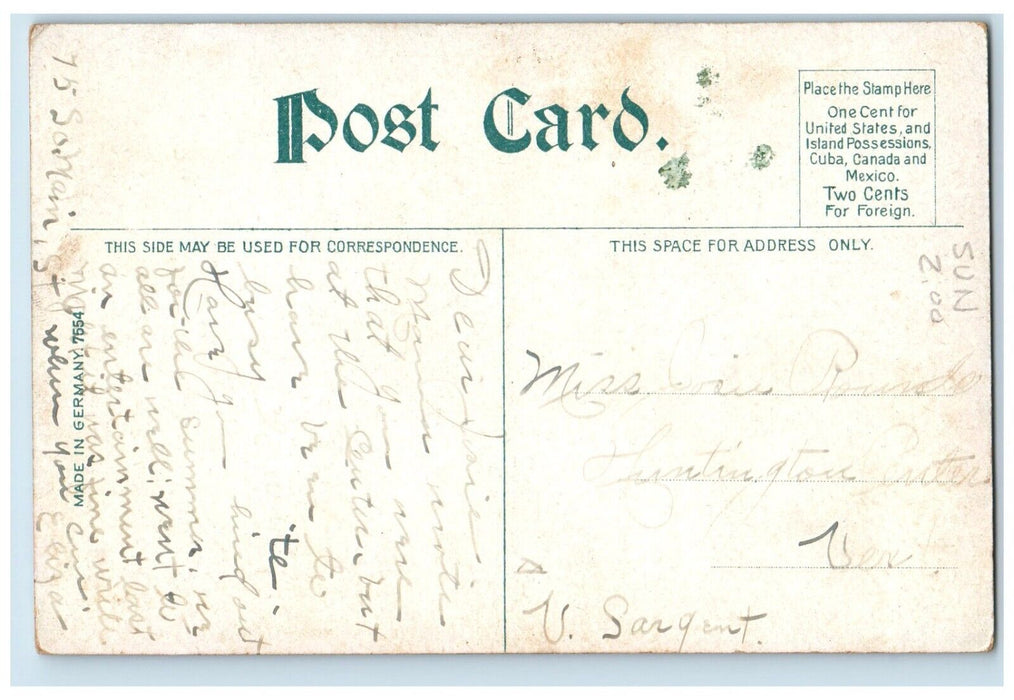 Post Card.
Place the Stamp Here
One Cent for
United States, and
Island Possessions,
Cuba, Canada and
Mexico.
Two Cents
For Foreign.
THIS SIDE MAY BE USED FOR CORRESPONDENCE.
THIS SPACE FOR ADDRESS ONLY.
SUN
2.00
Dear Josie
Mama wrote
that you were
at the Center but
have to
busy to
Have you hired out
for the summer, we
all are well; went to
an entertainment last
night; it was fine write
when you can.
75 So Main St
MADE IN GERMANY. 7554
Miss Josie
Huntington Center
Ver.
V. Sargent.